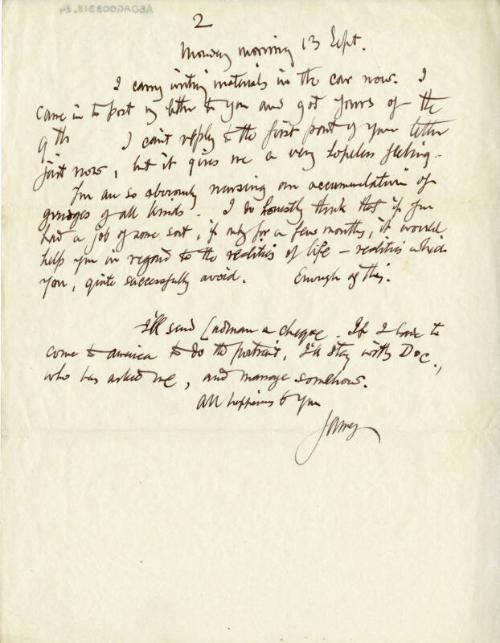 2
Monday morning 13 Sept.
I carry writing materials in the car now. I
came in to post my letter to you and got yours of the
9th I can't reply to the first point of your letter
just now, but it gives me a very hopeless feeling.
You are so obviously nursing an accumulation of
grudges of all kinds. I do honestly think that if you
had a job of some sort, if only for a few months, it would
help you in regard to the realities of life – realities which
you, quite successfully avoid. Enough of this.
I'll send Ladman a cheque. If I have to
come to America to do the portrait, I'll stay with Doc,
who has asked me, and manage somehow.
All happiness to you
Jamey